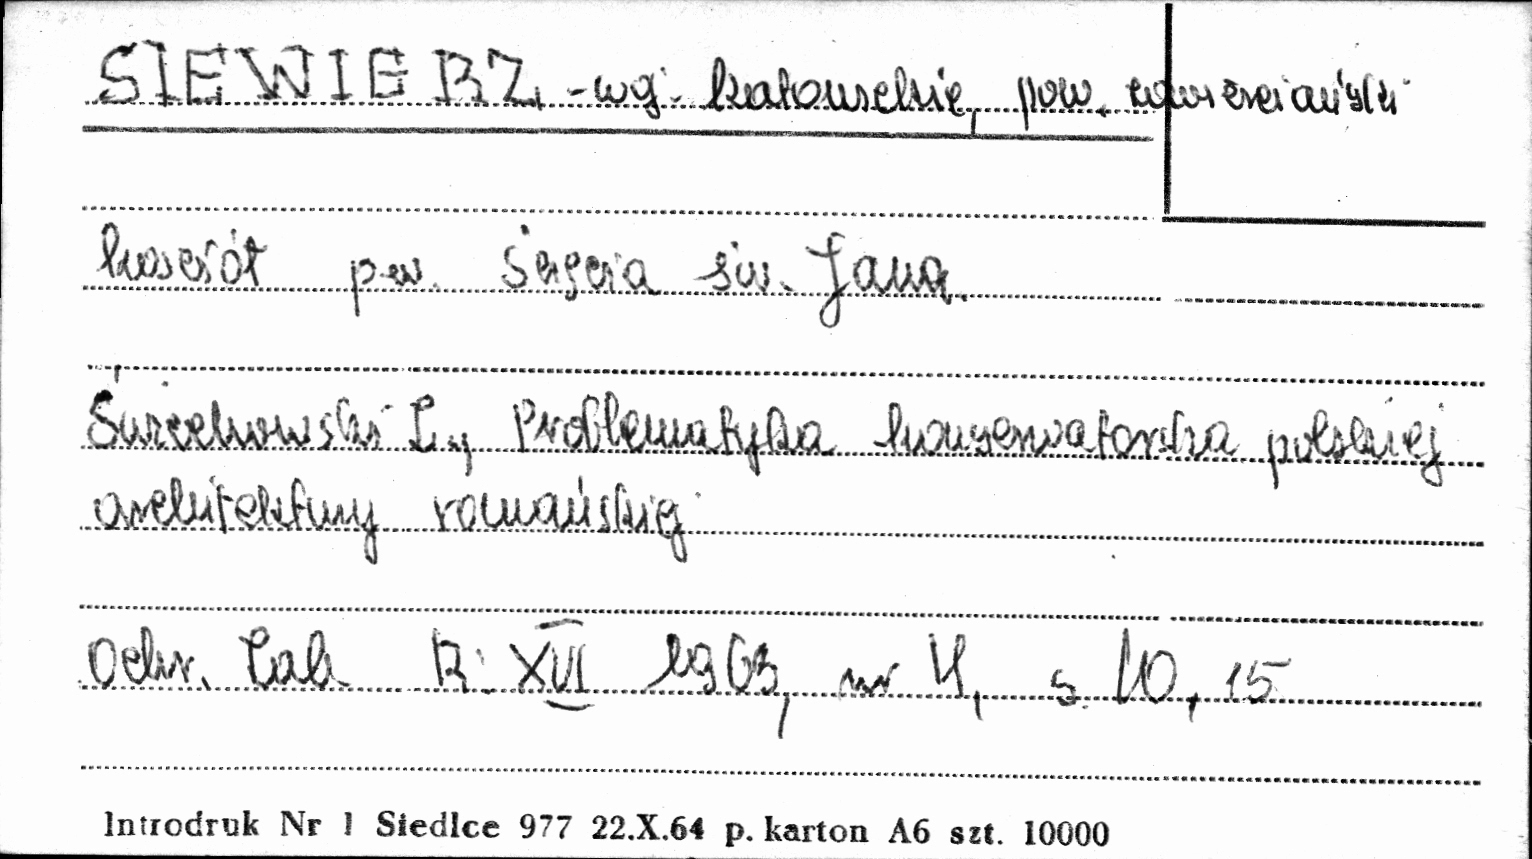 SIEWIERZ, - woj. katowickie, pow. zawierciański
kościół p.w. Ścięcia św. Jana.
Świechowski Z., Problematyka konserwatorska polskiej
architektury romańskiej
Ochr. Zab. R. XVI 1963, nr 4, s. 10, 15
Introdruk Nr 1 Siedlce 977 22.X.64 p. karton A6 szt. 10000